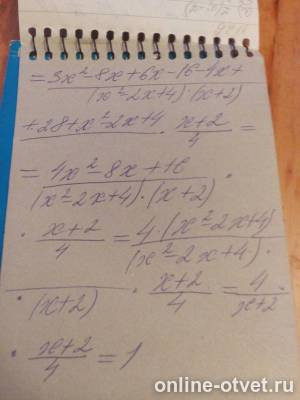 = 3x²-8x+6x-16-4x+
(x²-2x+4)·(x+2)
+28+x²-2x+4 · x+2 =
4
= 4x²-8x+16 ·
(x²-2x+4)·(x+2)
· x+2 = 4·(x²-2x+4)
4 (x²-2x+4)·
(x+2) · x+2 = 4 ·
4 x+2
· x+2 = 1
4
online-otvet.ru